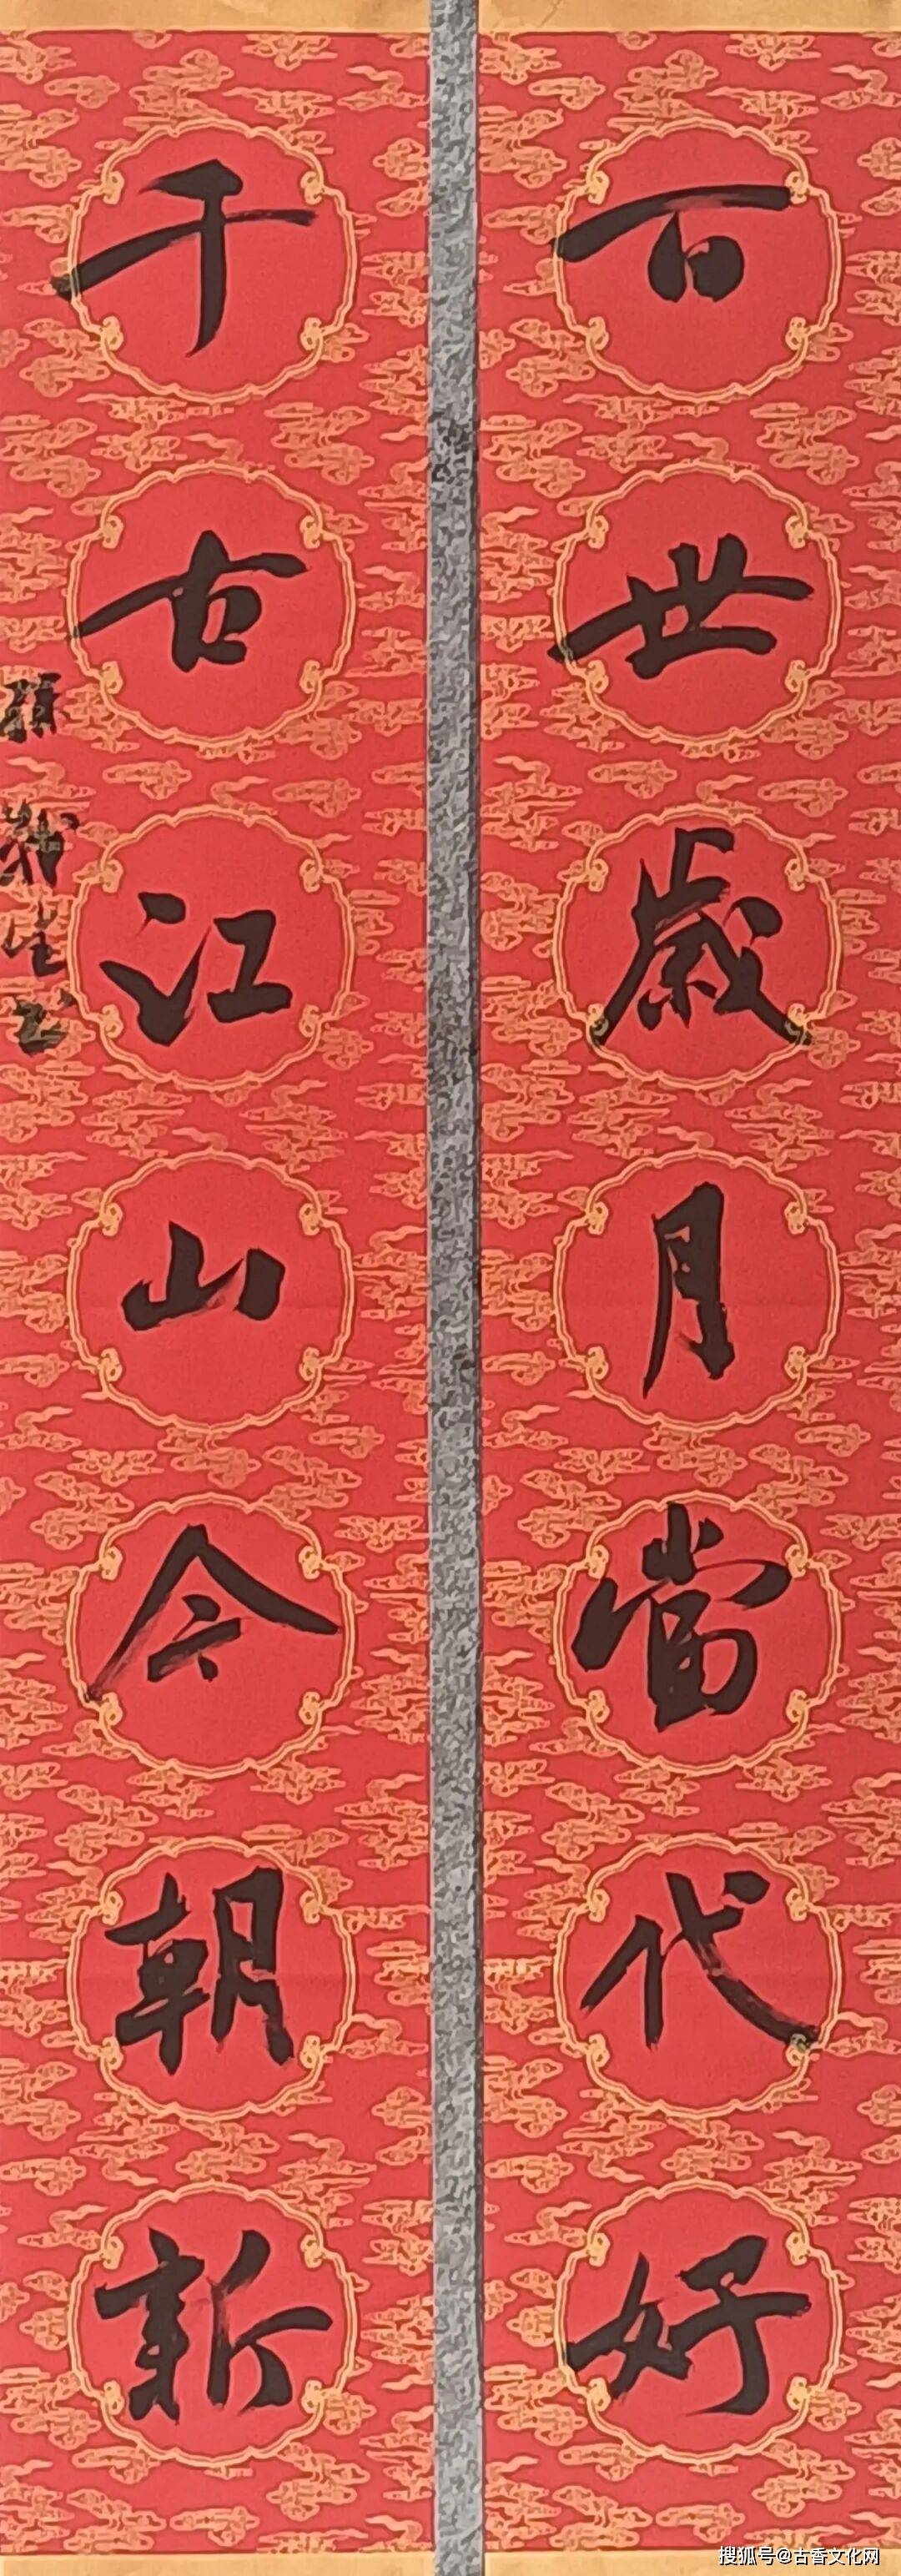 百世歲月當代好
千古江山今朝新
搜狐号@古香文化网